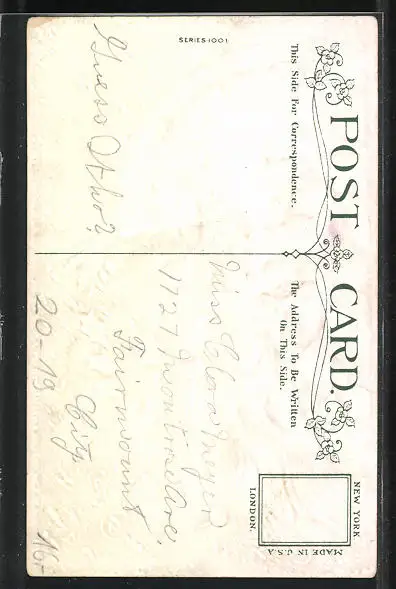 SERIES 1001
POST CARD.
This Side For Correspondence.
The Address To Be Written
On This Side.
NEW YORK
MADE IN U.S.A
LONDON.
Guess Who?
Miss Clara Meyer
1727 Ave.
Fairmount
City.
20-19
16.-